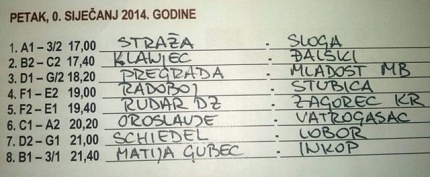 PETAK, 0. SIJEČANJ 2014. GODINE
1. A1 – 3/2 17,00 STRAŽA : SLOGA
2. B2 – C2 17,40 KLANJEC : ĐALSKI
3. D1 – G/2 18,20 PREGRADA : MLADOST MB
4. F1 – E2 19,00 RADOBOJ : STUBICA
5. F2 – E1 19,40 RUDAR DZ : ZAGOREC KR
6. C1 – A2 20,20 OROSLAVJE : VATROGASAC
7. D2 – G1 21,00 SCHIEDEL : LOBOR
8. B1 – 3/1 21,40 MATIJA GUBEC : INKOP